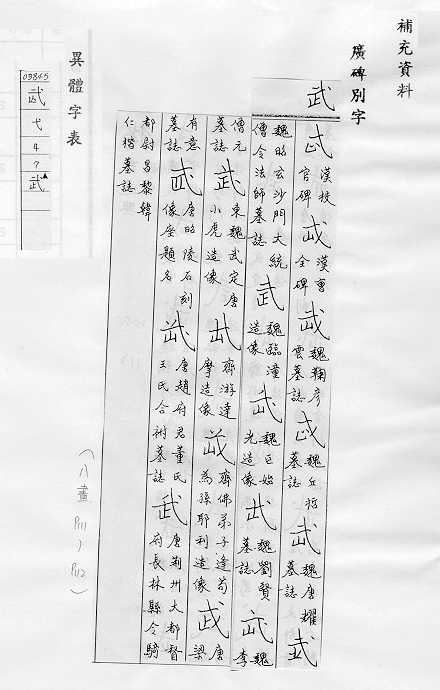 補充資料
廣碑別字
武
武 漢校官碑 武 漢曹全碑 武 魏鞠彦雲墓誌 武 魏丘哲墓誌 武 魏唐耀墓誌 武
魏昭玄沙門大統僧令法師墓誌 武 魏臨潼造像 武 魏巨始光造像 武 魏劉賢墓誌 武 魏李
僧元墓誌 武 東魏武定唐小虎造像 武 齊游達摩造像 武 齊佛弟子逢苟為孫耶利造像 武 唐梁
有意墓誌 武 唐昭陵石刻像座題名 武 唐趙府君董氏王氏合祔墓誌 武 唐荊州大都督府長林縣令騎
都尉昌黎韓仁楷墓誌
(八畫 P111) P112
異體字表
03845
弋
4
7
武